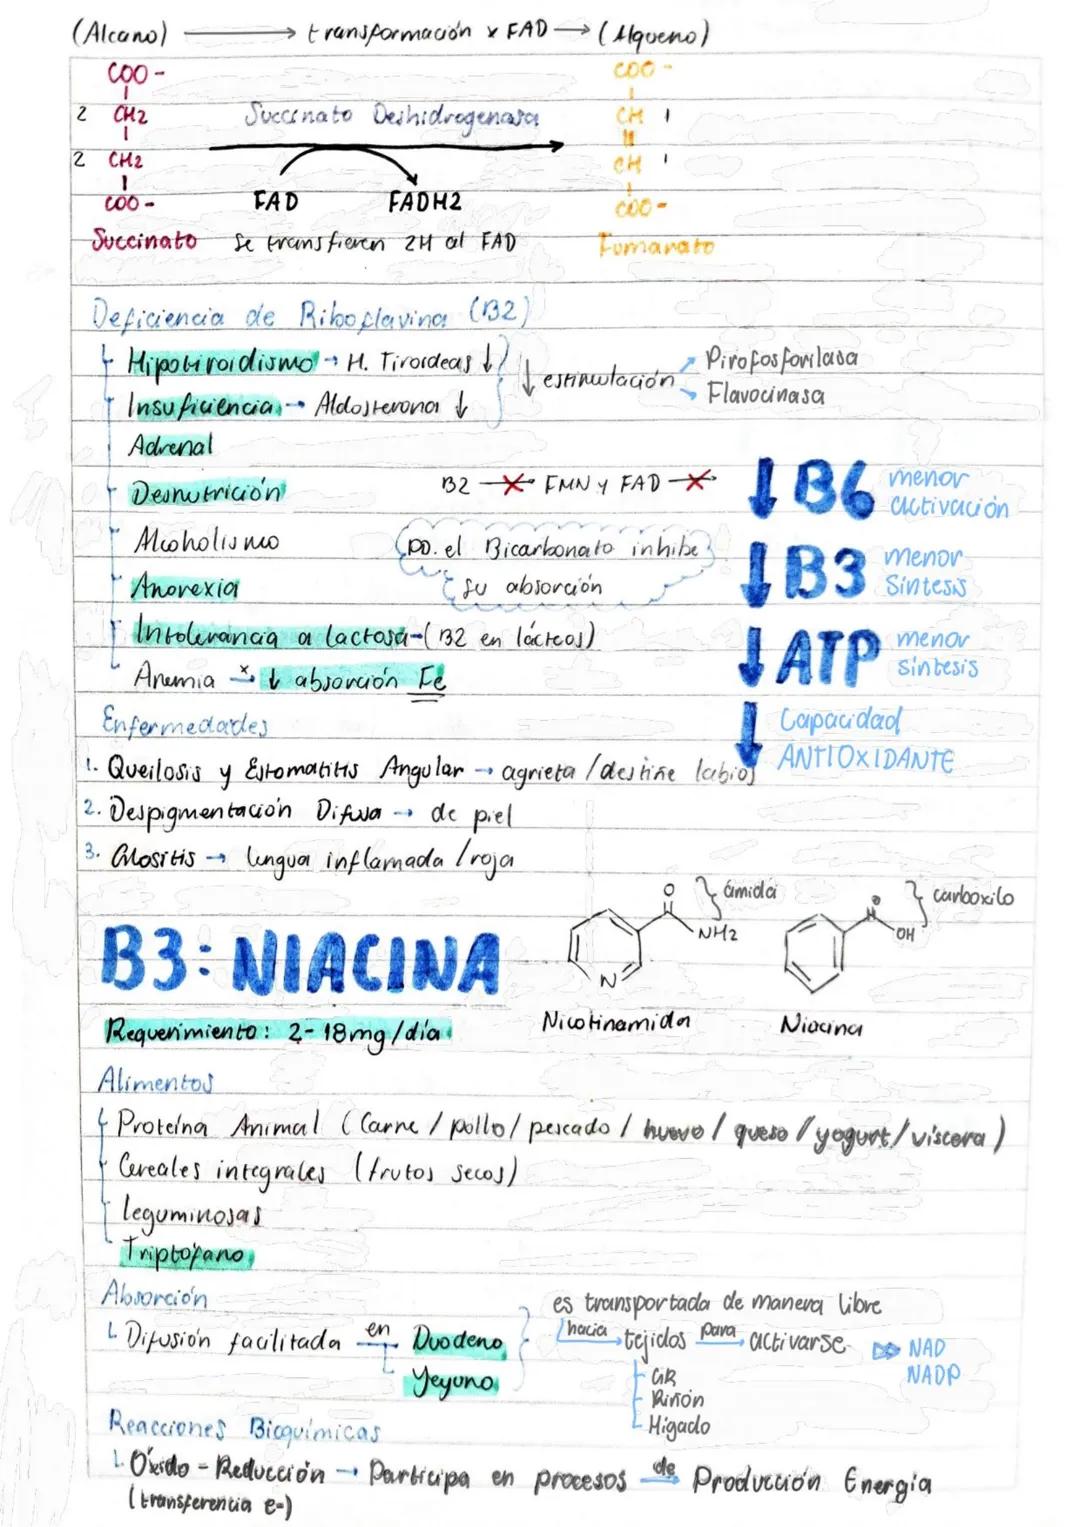 (Alcano) → transformación x FAD → (Alqueno)
COO-
2 CH2
2 CH2
COO-
Succinato
Succinato Deshidrogenasa
FAD FADH2
Se transfieren 2H al FAD
COO-
CH 1
CH 1
COO-
Fumarato
Deficiencia de Riboflavina (B2)
Hipotiroidismo → H. Tiroideas ↓
Insuficiencia → Aldosterona ↓
Adrenal
↓ estimulación
Pirofosforilasa
Flavocinasa
Desnutrición
B2 FMN y FAD
Alcoholismo
po. el Bicarbonato inhibe
su absorción
Anorexia
Intolerancia a lactosa - (B2 en lácteos)
Anemia x → ↓ absorción Fe
↓ B6 menor activación
↓ B3 menor síntesis
↓ ATP menor síntesis
↓ Capacidad ANTIOXIDANTE
Enfermedades
1. Queilosis y Estomatitis Angular → agrieta / destiñe labios
2. Despigmentación Difusa → de piel
3. Glositis → lengua inflamada / roja
B3: NIACINA
O
} amida
NH2
N
Nicotinamida
} carboxilo
OH
Niacina
Requerimiento: 2-18mg/día
Alimentos
Proteína Animal (Carne / pollo / pescado / huevo / queso / yogurt / víscera)
Cereales integrales (frutos secos)
leguminosas
Triptófano
Absorción
Difusión facilitada en → Duodeno
Yeyuno
es transportada de manera libre
hacia → tejidos para → activarse
GR
Riñón
Hígado
NAD
NADP
Reacciones Bioquímicas
Óxido - Reducción → Participa en procesos de → Producción Energía
(transferencia e-)